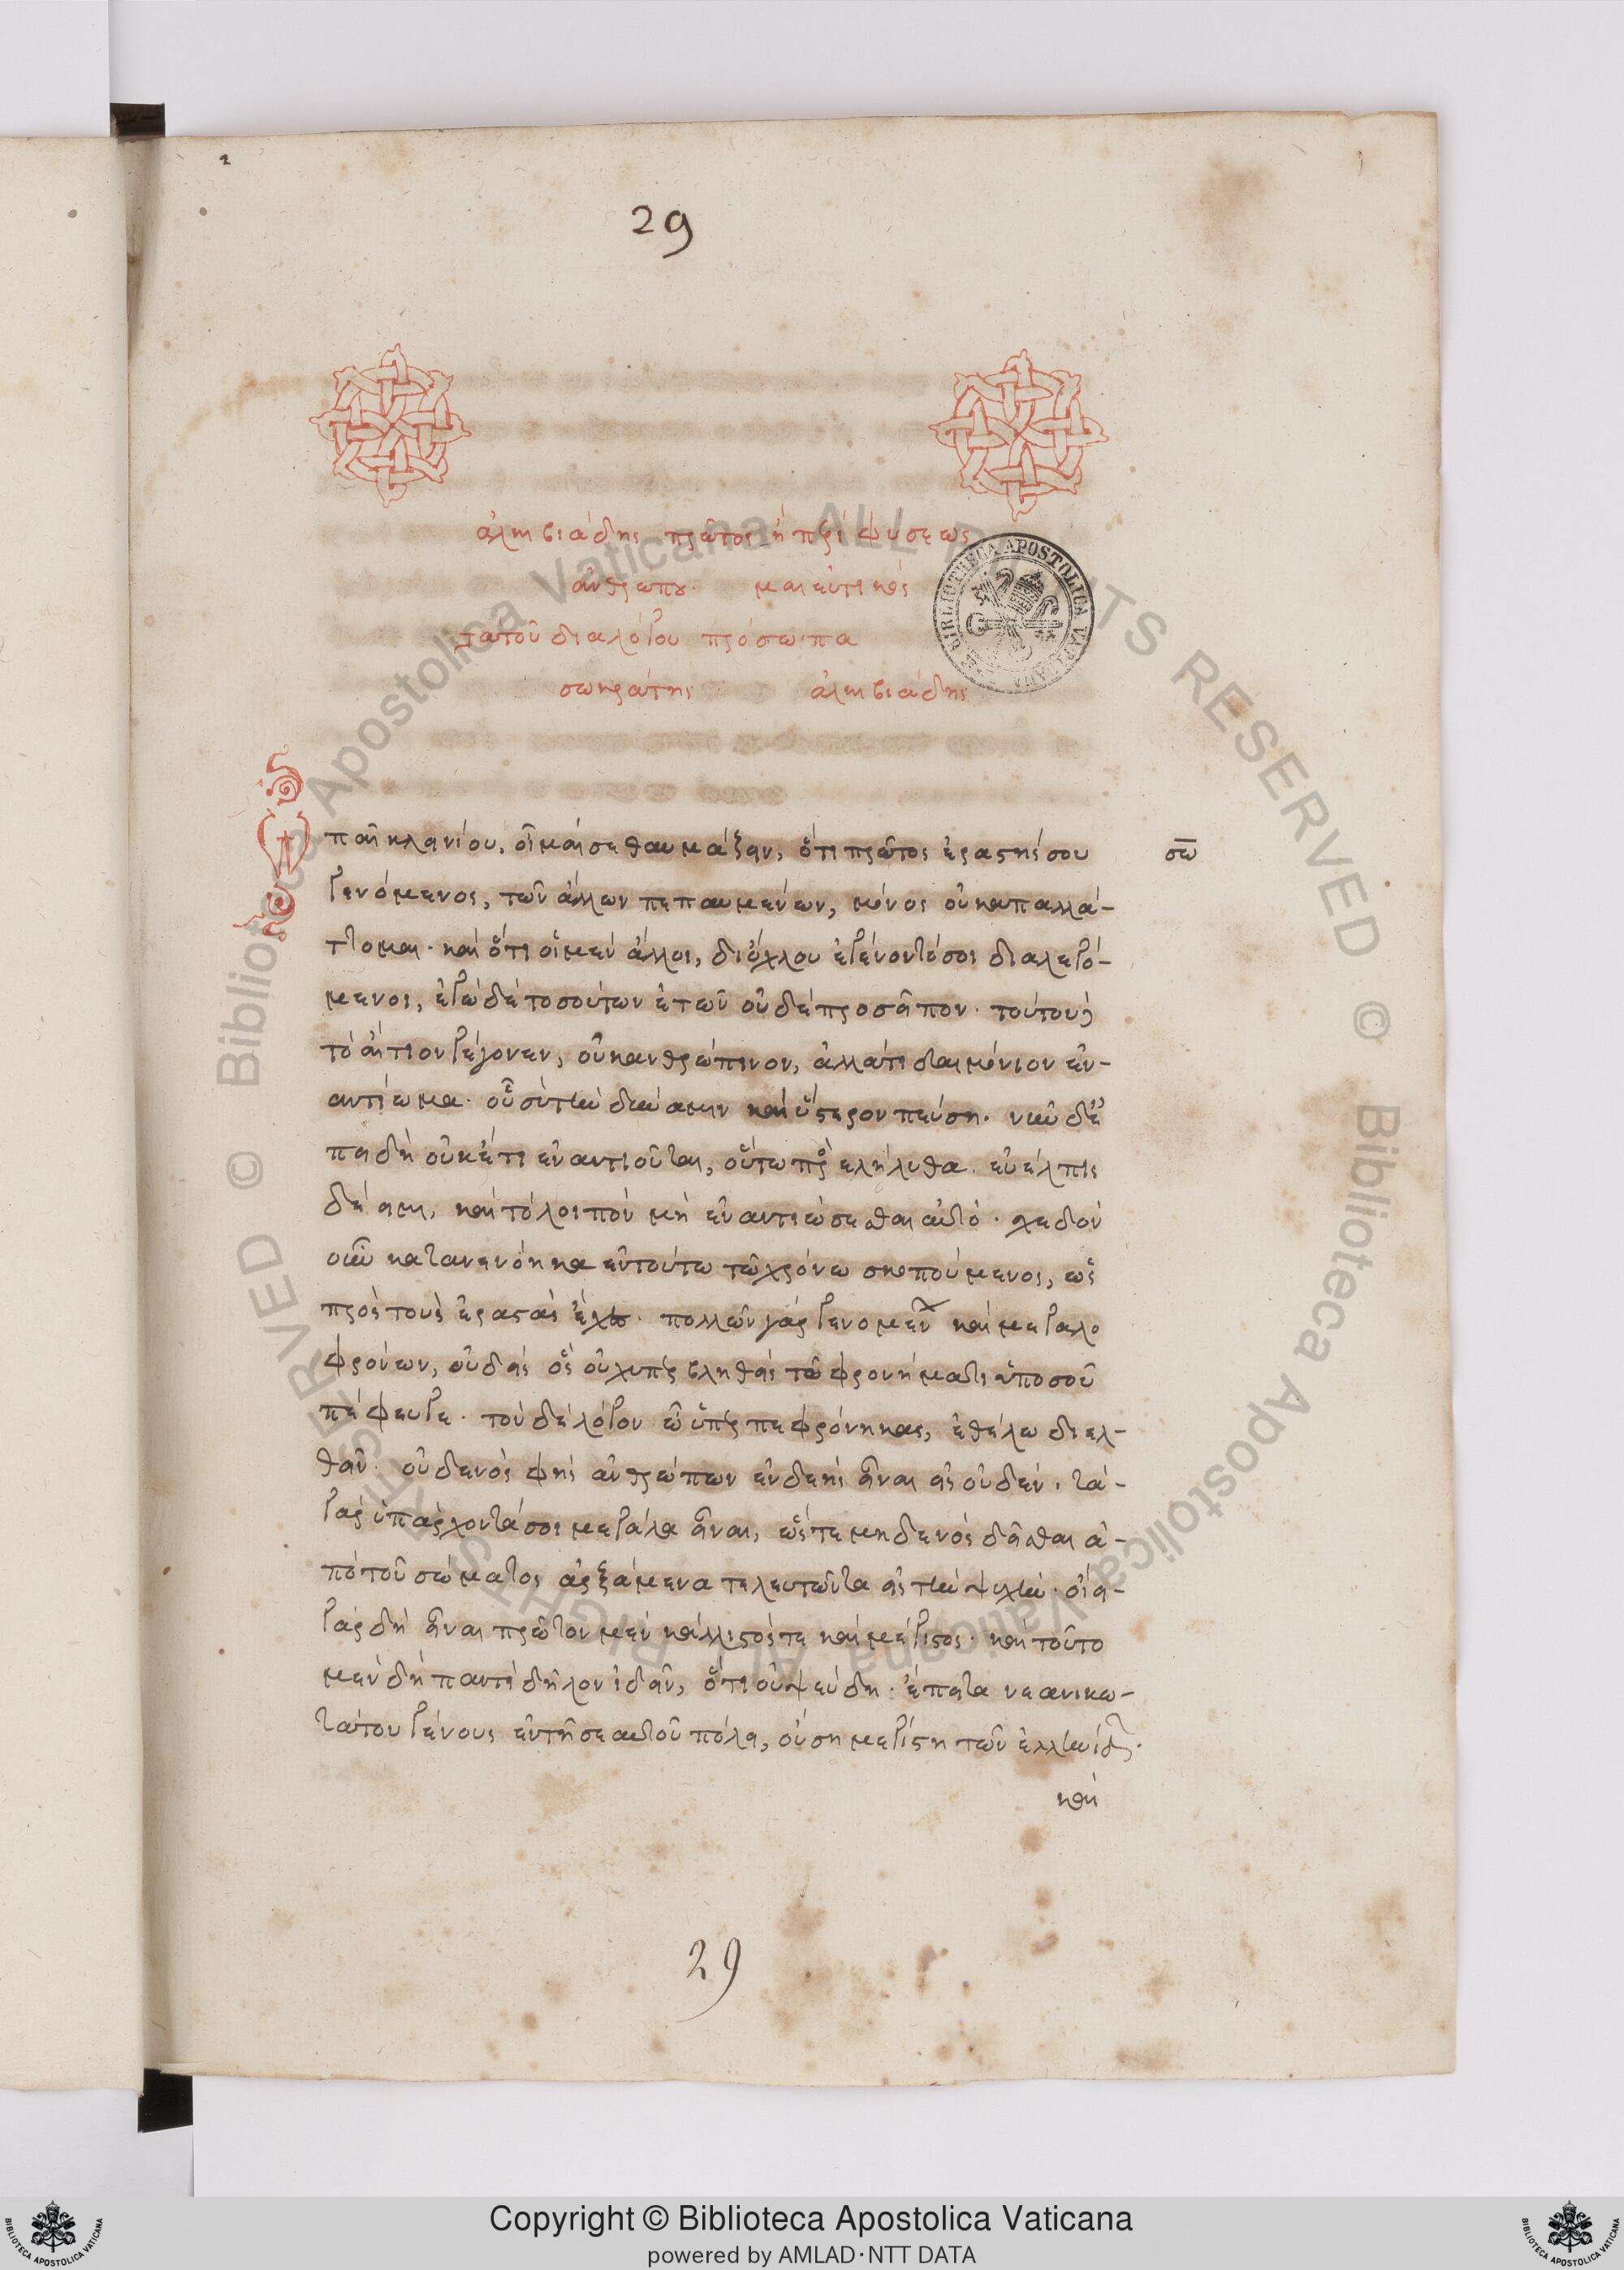 2
29
ἀλκιβιάδης πρῶτος ἢ περὶ φύσεως
ἀνθρώπου· μαιευτικός
τὰ τοῦ διαλόγου πρόσωπα
σωκράτης ἀλκιβιάδης
ὦ
παῖ κλεινίου, οἶμαί σε θαυμάζειν, ὅτι πρῶτος ἐραστής σου
σω
γενόμενος, τῶν ἄλλων πεπαυμένων, μόνος οὐκ ἀπαλλά-
ττομαι· καὶ ὅτι οἱ μὲν ἄλλοι, δι' ὄχλου ἐγένοντό σοι διαλεγό-
μενοι, ἐγὼ δὲ τοσούτων ἐτῶν οὐδὲ προσεῖπον· τούτου δὲ
τὸ αἴτιον γέγονεν, οὐκ ἀνθρώπινον, ἀλλά τι δαιμόνιον ἐν-
αντίωμα· οὗ σὺ τὴν δύναμιν καὶ ὕστερον πεύσῃ· νῦν δὲ ἐ
πειδὴ οὐκέτι ἐναντιοῦται, οὕτω προσελήλυθα· εὔελπις
δέ εἰμι, καὶ τὸ λοιπὸν μὴ ἐναντιώσεσθαι αὐτό· σχεδὸν
οὖν κατανενόηκα ἐν τούτω τῶ χρόνω σκοπούμενος, ὡς
πρὸς τοὺς ἐραστὰς ἔχεις· πολλῶν γὰρ γενομένων καὶ μεγαλο
φρόνων, οὐδεὶς ὃς οὐχ ὑπερβληθεὶς τῶ φρονήματι ὑπὸ σοῦ
πέφευγε· τὸν δὲ λόγον ὧ ὑπερπεφρόνηκας, ἐθέλω διελ-
θεῖν· οὐδενὸς φῂς ἀνθρώπων ἐνδεὴς εἶναι εἰς οὐδέν· τὰ-
γὰρ ὑπάρχοντά σοι μεγάλα εἶναι, ὥστε μηδενὸς δεῖσθαι ἀ-
πὸ τοῦ σώματος ἀρξάμενα τελευτῶντα εἰς τὴν ψυχήν· οἴει-
γὰρ δὴ εἶναι πρῶτον μὲν κάλλιστός τε καὶ μέγιστος· καὶ τοῦτο
μὲν δὴ παντὶ δῆλον ἰδεῖν, ὅτι οὐ ψεύδη· ἔπειτα νεανικω-
τάτου γένους ἐν τῆ σεαυτοῦ πόλει, οὔσῃ μεγίστη τῶν ἑλληνίδων·
καὶ
29
BIBLIOTHECA APOSTOLICA VATICANA
© Biblioteca Apostolica Vaticana ALL RIGHTS RESERVED © Biblioteca Apostolica Vaticana ALL RIGHTS RESERVED
Copyright © Biblioteca Apostolica Vaticana
powered by AMLAD·NTT DATA
BIBLIOTECA APOSTOLICA VATICANA
BIBLIOTECA APOSTOLICA VATICANA